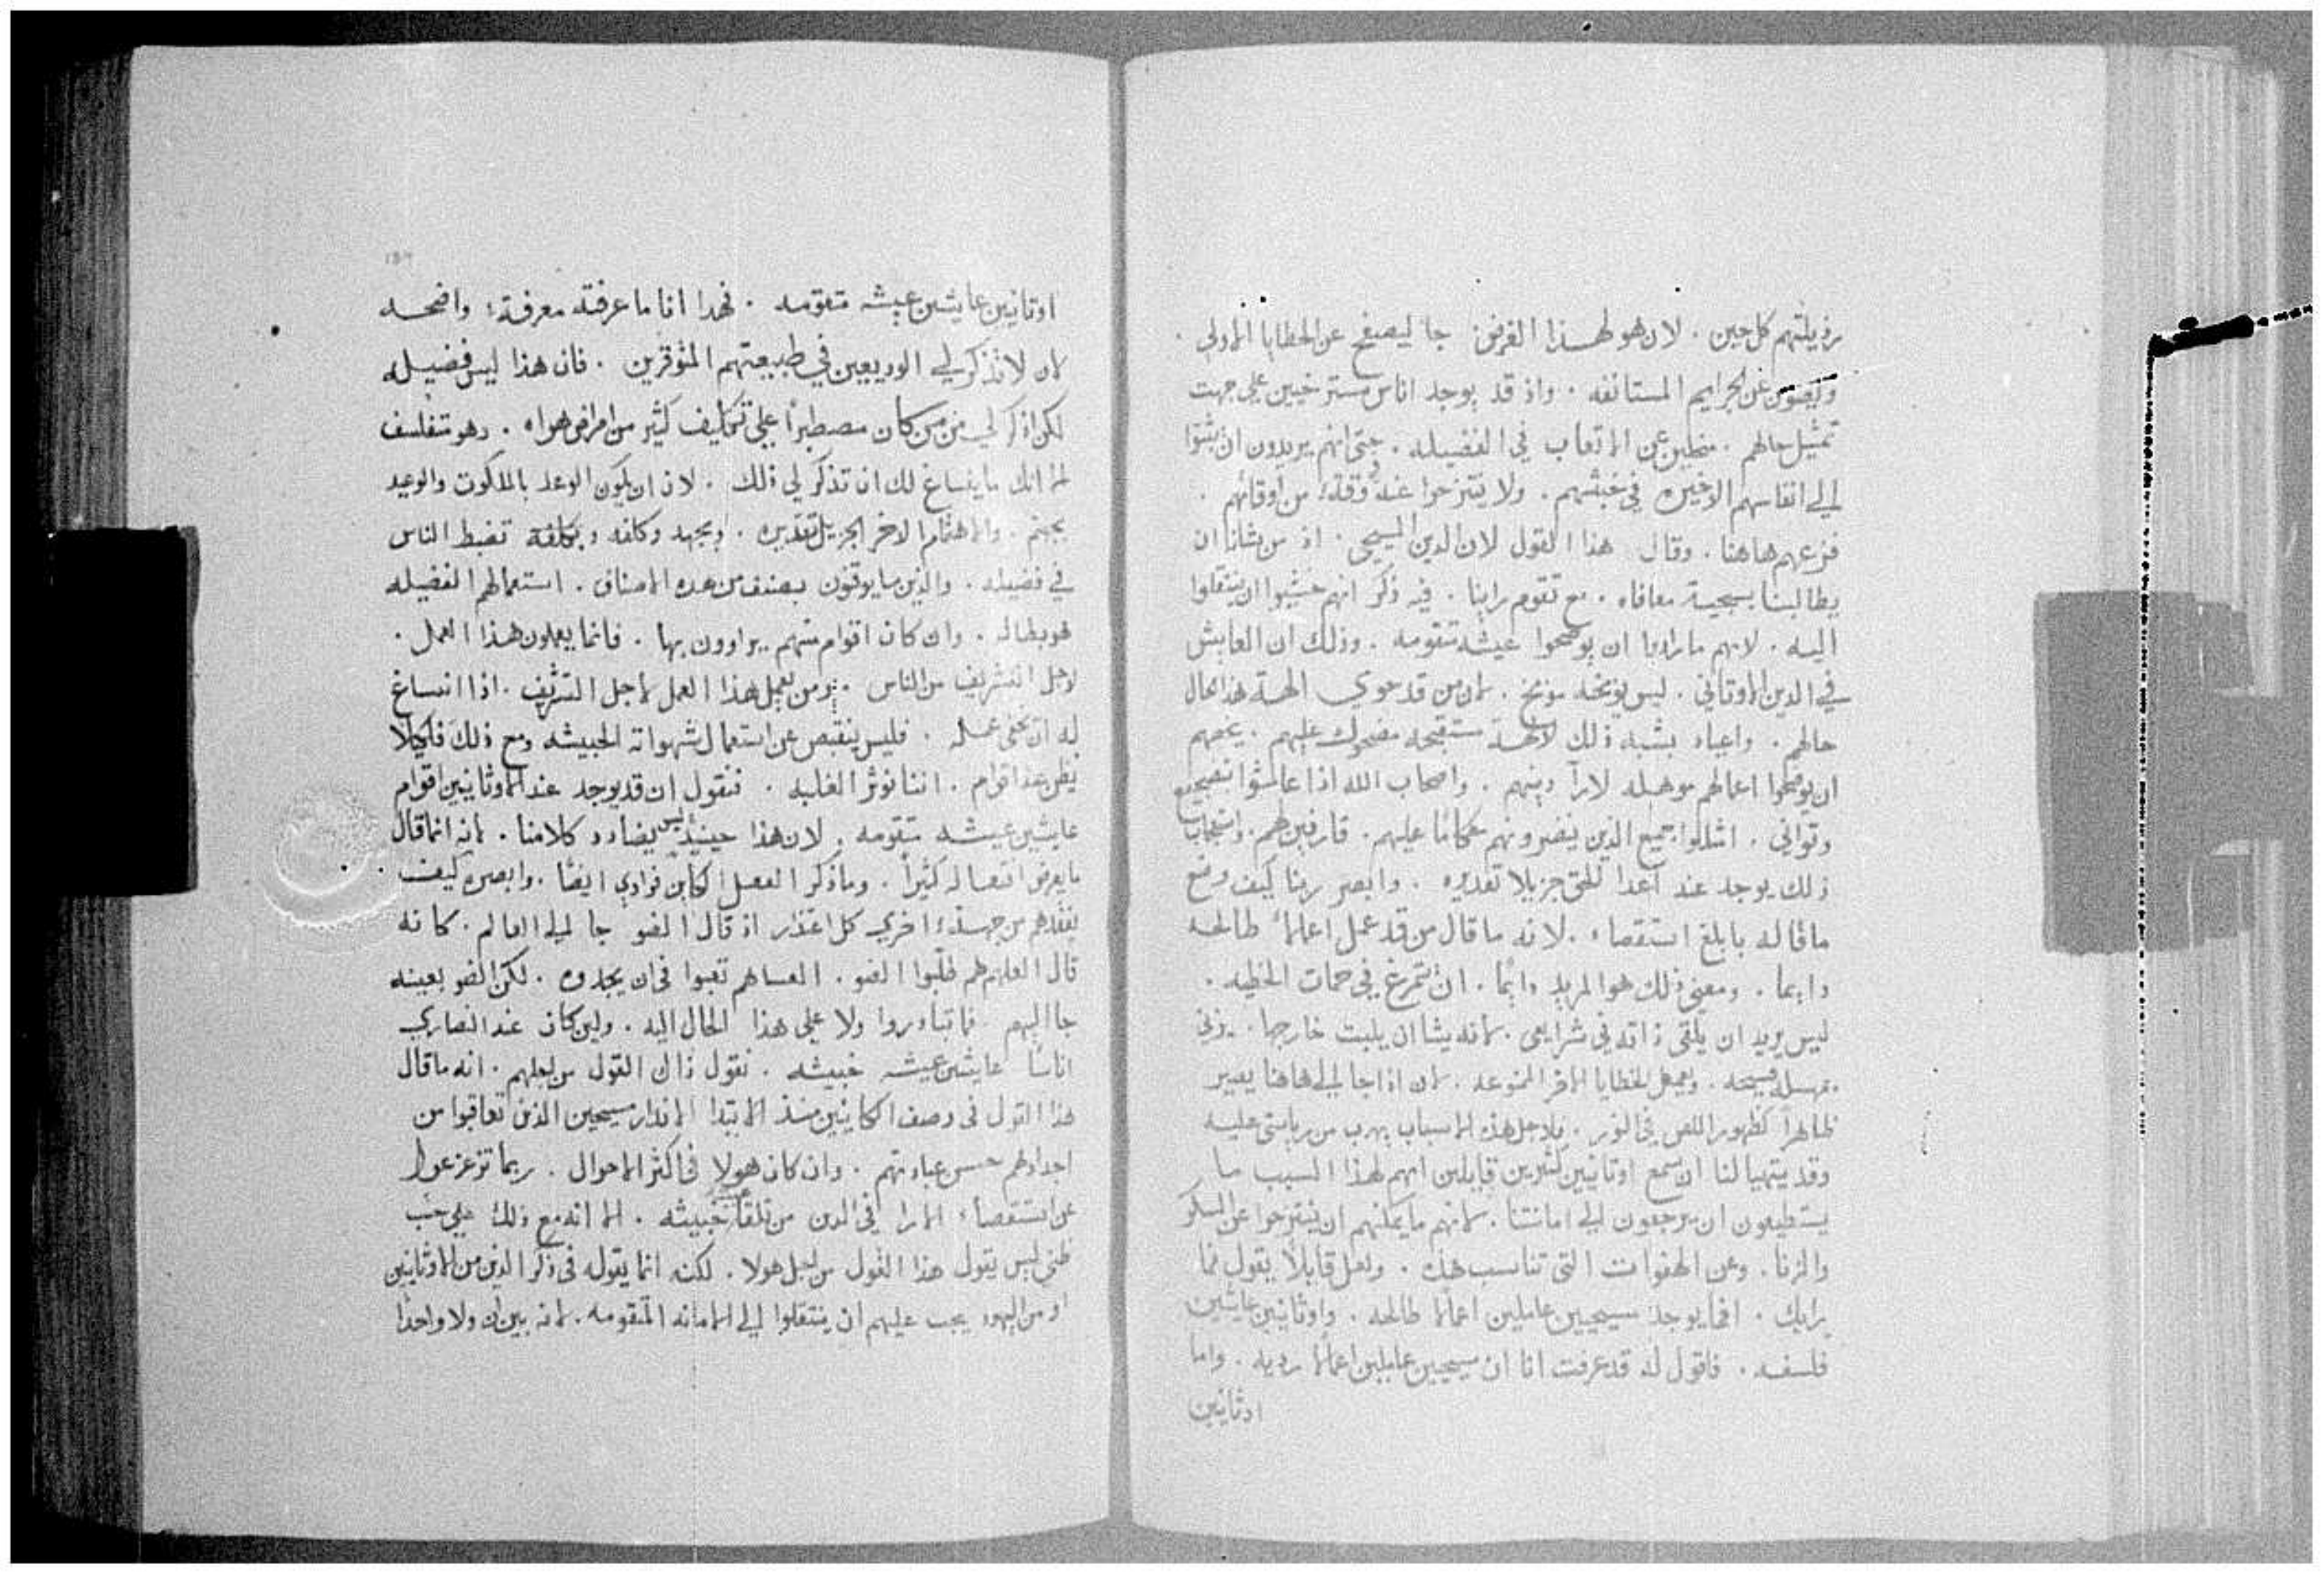 رذيلتهم كل حين . لان هو لهذا الغرض جا ليصفح عن الخطايا الاولى .
ويصون عن الجرايم المستانفه . واذ قد يوجد اناس مسترخيين على جهت
تمثيل حالهم . منحلين عن الاتعاب في الفضيله . حتى انهم يريدون ان يثبتوا
الى انفاسهم الاخيره في خبثهم . ولا ينتزحوا عنه في وقته من اوقاتهم .
فزعهم هاهنا . وقال هذا القول لان الدين المسيحي . اذ من شانا ان
يطالبنا بسجية معافاه . مع تقوم راينا . فيه ذكر انهم خشيوا ان ينتقلوا
اليه . لانهم ما رادوا ان يوضحوا عيشه متقومه . وذلك ان العايش
في الدين الاوتاني . ليس يوبخه موبخ . لان من قد حوي الهة هذا الحال
حالهم . واعياد بشبه ذلك الالهة مستقبحه مضحوك عليهم .
ان يوضحوا اعمالهم موهله لارآ دينهم . واصحاب الله اذا عاشوا بتضجيع
وتواني . اشتلوا جميع الذين ينضرونهم حكامًا عليهم . قارفين لهم .
ذلك يوجد عند اعدا للحق جزيلا تقديره . وابصر ربنا كيف وضع
ما قاله بابلغ استقصاء . لانه ما قال من قد عمل اعمالاً طالحه
دايما . ومعنى ذلك هو المريد دايمًا . ان يتمرغ في حمات الخطيه .
ليس يريد ان يلقى ذاته في شرايعى . لانه يشا ان يلبث خارجها . يزني
بمهل فسيحه . ويعمل الخطايا الاخر الممنوعه . لان اذا جا الى هاهنا يصير
ظاهراً كظهور اللص في النور . فلاجل هذه الاسباب يهرب من رياستى عليه
وقد يتهيا لنا ان نسمع اوتانيين كثيرين قايلين انهم لهذا السبب ما
يستطيعون ان يرجعون الى امانتنا . لانهم ما يمكنهم ان ينتزحوا عن السكر
والزنا . وعن الهفوات التي تناسب هذه . ولعل قايلاً يقول فما
رايك . افما يوجد مسيحيين عاملين اعمالا طالحه . واوثانيين عايشين
فلسفه . فاقول له قد عرفت انا ان مسيحيين عاملين اعمالًا رديه . واما
اوثانيين
اوتانيين عايشين عيشه متقومه . فهذا انا ما عرفته معرفة واضحه
لان لا تذكر لي الوديعين في طبيعتهم الموقرين . فان هذا ليس فضيله
لكن اذكر لي من كان مصطبراً على تكاليف كثير من امراض هواه . وهو متفلسف
الا انك ما ينساغ لك ان تذكر لي ذلك . لان ان يكون الوعد بالملكوت والوعيد
بجهنم . والاهتمام الاخر الجزيل تقديره . وبجهد وكلفه وبكلفة تضبط الناس
في فضيله . والذين ما يوقنون بصنف من هذه الاصناف . استعمالهم الفضيله
هو بطاله . وان كان اقوام منهم يراوون بها . فانما يعملون هذا العمل .
لاجل التشريف من الناس . ومن يعمل هذا العمل لاجل التشريف . اذا انساغ
له ان يخفى عمله . فليس ينقبض عن استعمال شهواته الخبيثه ومع ذلك فلكيلا
يظن عند اقوام . اننا نوثر الغلبه . فنقول ان قد يوجد عند الاوثانيين اقوام
عايشين عيشه متقومه . لان هذا حينيذ ليس يضادد كلامنا . لانه انما قال
ما يعرض افتعاله كثيراً . وما ذكر الفعل الكاين فرادي ايضًا . وابصره كيف
يفقدهم من جهة اخري كل اعتذار اذ قال الضو جا الى العالم . كانه
قال العلهم هم طلبوا الضو . العساهم تعبوا في ان يجدوه . لكن الضو بعينه
جا اليهم فما تبادروا ولا على هذا الحال اليه . ولين كان عند النصاري
اناسًا عايشين عيشه خبيثه . نقول ذاك القول من اجلهم . انه ما قال
هذا القول في وصف الكاينين منذ الابتدا الاندار مسيحين الذين تعاقبوا من
اجدادهم حسن عبادتهم . وان كان هولا في اكثر الاحوال . ربما تزعزعوا
عن استقصاء الارا في الدين من تلقا عيشه خبيثه . الا انه مع ذلك على حسب
ظني ليس يقول هذا القول من اجل هولا . لكنه انما يقوله في ذكر الذين من الاوثانيين
او من اليهود يجب عليهم ان ينتقلوا الى الامانه المتقومه . لانه بين ان ولا واحدًا